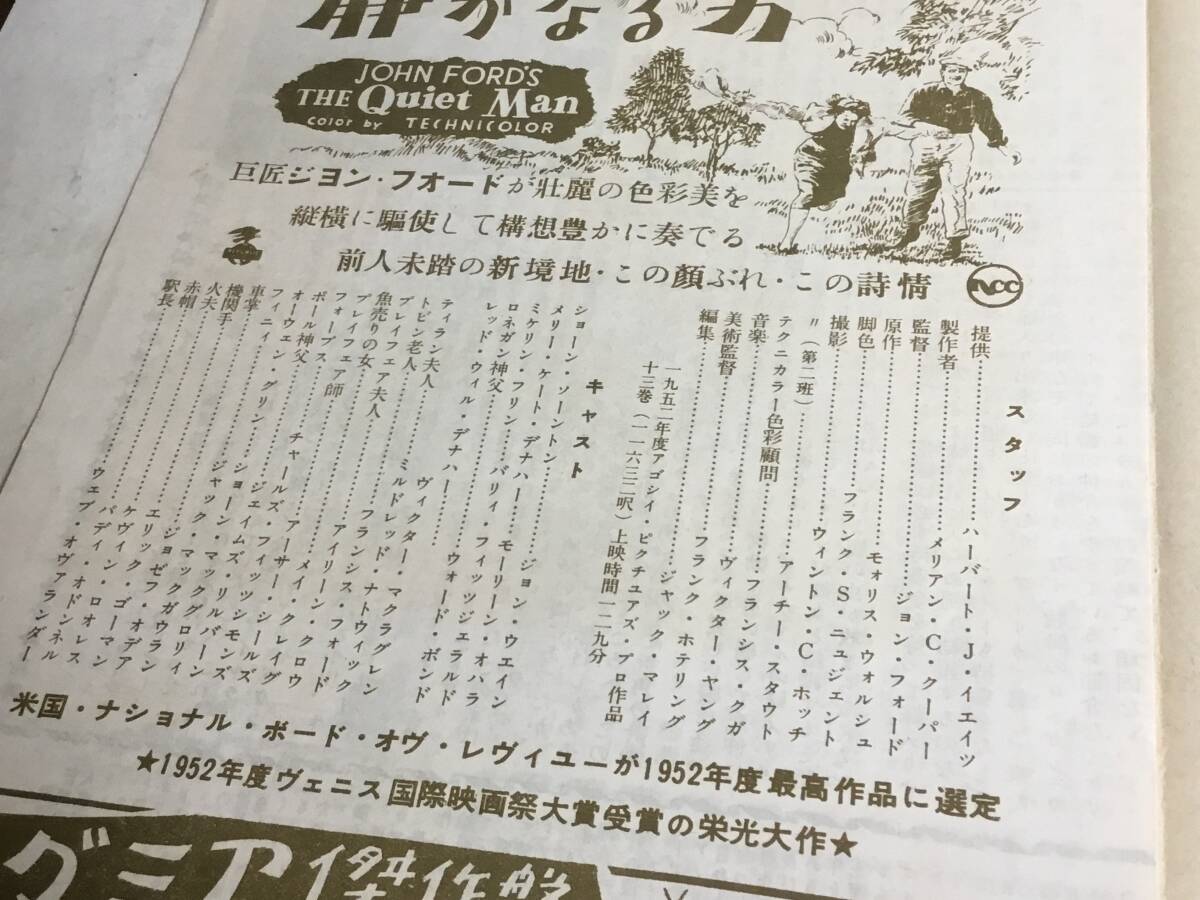 静かなる男
JOHN FORD'S
THE Quiet Man
COLOR by TECHNICOLOR
巨匠ジヨン・フオードが壯麗の色彩美を
縦横に驅使して構想豊かに奏でる
前人未踏の新境地・この顔ぶれ・この詩情
NCC
スタッフ
提供……ハーバート・J・イエイツ
製作者……メリアン・C・クーパー
監督……ジョン・フォード
原作……モオリス・ウォルシュ
脚色……フランク・S・ニュジェント
撮影……ウィントン・C・ホッチ
〃(第二班)……アーチー・スタウト
テクニカラー色彩顧問……フランシス・クガ
音楽……ヴィクター・ヤング
美術監督……フランク・ホテリング
編集……ジャック・マレイ
一九五二年度アゴシイ・ピクチュアズ・プロ作品
十三巻(一一六三二呎)上映時間一二九分
キャスト
ショーン・ソーントン……ジョン・ウエイン
メリー・ケート・デナハー……モーリーン・オハラ
ミケリン・フリン……バリィ・フィッツジェラルド
ロネガン神父……ウォード・ボンド
レッド・ウィル・デナハー……ヴィクター・マクラグレン
ティラン夫人……ミルドレッド・ナトウィック
トビン老人……フランシス・フォード
プレイフェア夫人……アイリーン・クロウ
魚売りの女……メイ・クレイグ
プレイフェア師……アーサー・シールズ
フォーブス……チャールズ・フィッツシモンズ
ポール神父……ジェイムズ・リルバーン
オーウェン・グリン……ショーン・マックグロリィ
フィニィ……ジャック・マックガウラン
車掌……ジョゼフ・オデア
機関手……エリック・ゴーマン
火夫……ケヴィン・ローレス
赤帽……パディ・オドンネル
駅長……ウェブ・オヴァランダー
米国・ナショナル・ボード・オヴ・レヴィユーが1952年度最高作品に選定
★1952年度ヴェニス国際映画祭大賞受賞の栄光大作★
グニア傑作